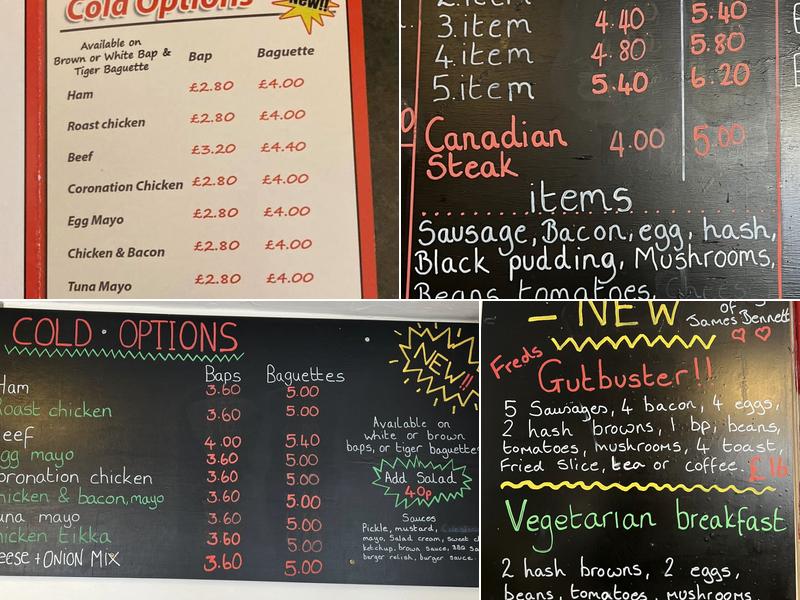 Cold Options
New!!
Available on
Brown or White Bap &
Tiger Baguette
Bap Baguette
Ham £2.80 £4.00
Roast chicken £2.80 £4.00
Beef £3.20 £4.40
Coronation Chicken £2.80 £4.00
Egg Mayo £2.80 £4.00
Chicken & Bacon £2.80 £4.00
Tuna Mayo £2.80 £4.00
2.item 5.40
3.item 4.40
4.item 4.80 5.80
5.item 5.40 6.20
Canadian 4.00 5.00
Steak
items
Sausage, Bacon, egg, hash,
Black pudding, Mushrooms,
Beans, tomatoes,
COLD · OPTIONS
NEW!!
Baps Baguettes
Ham 3.60 5.00
Roast chicken 3.60 5.00
eef 4.00 5.40
gg mayo 3.60 5.00
oronation chicken 3.60 5.00
hicken & bacon, mayo 3.60 5.00
una mayo 3.60 5.00
hicken tikka 3.60 5.00
eese + ONION MIX 3.60 5.00
Available on
white or brown
baps, or tiger baguettes
Add Salad
40p
Sauces
Pickle, mustard,
mayo, Salad cream, sweet c
ketchup, brown sauce, BBQ Sa
burger relish, burger sauce.
– NEW
of
James Bennett
Freds
Gutbuster!!
5 Sausages, 4 bacon, 4 eggs,
2 hash browns, 1 bp, beans,
tomatoes, mushrooms, 4 toast,
Fried Slice, tea or coffee. £16
Vegetarian breakfast
2 hash browns, 2 eggs,
beans, tomatoes, mushrooms,